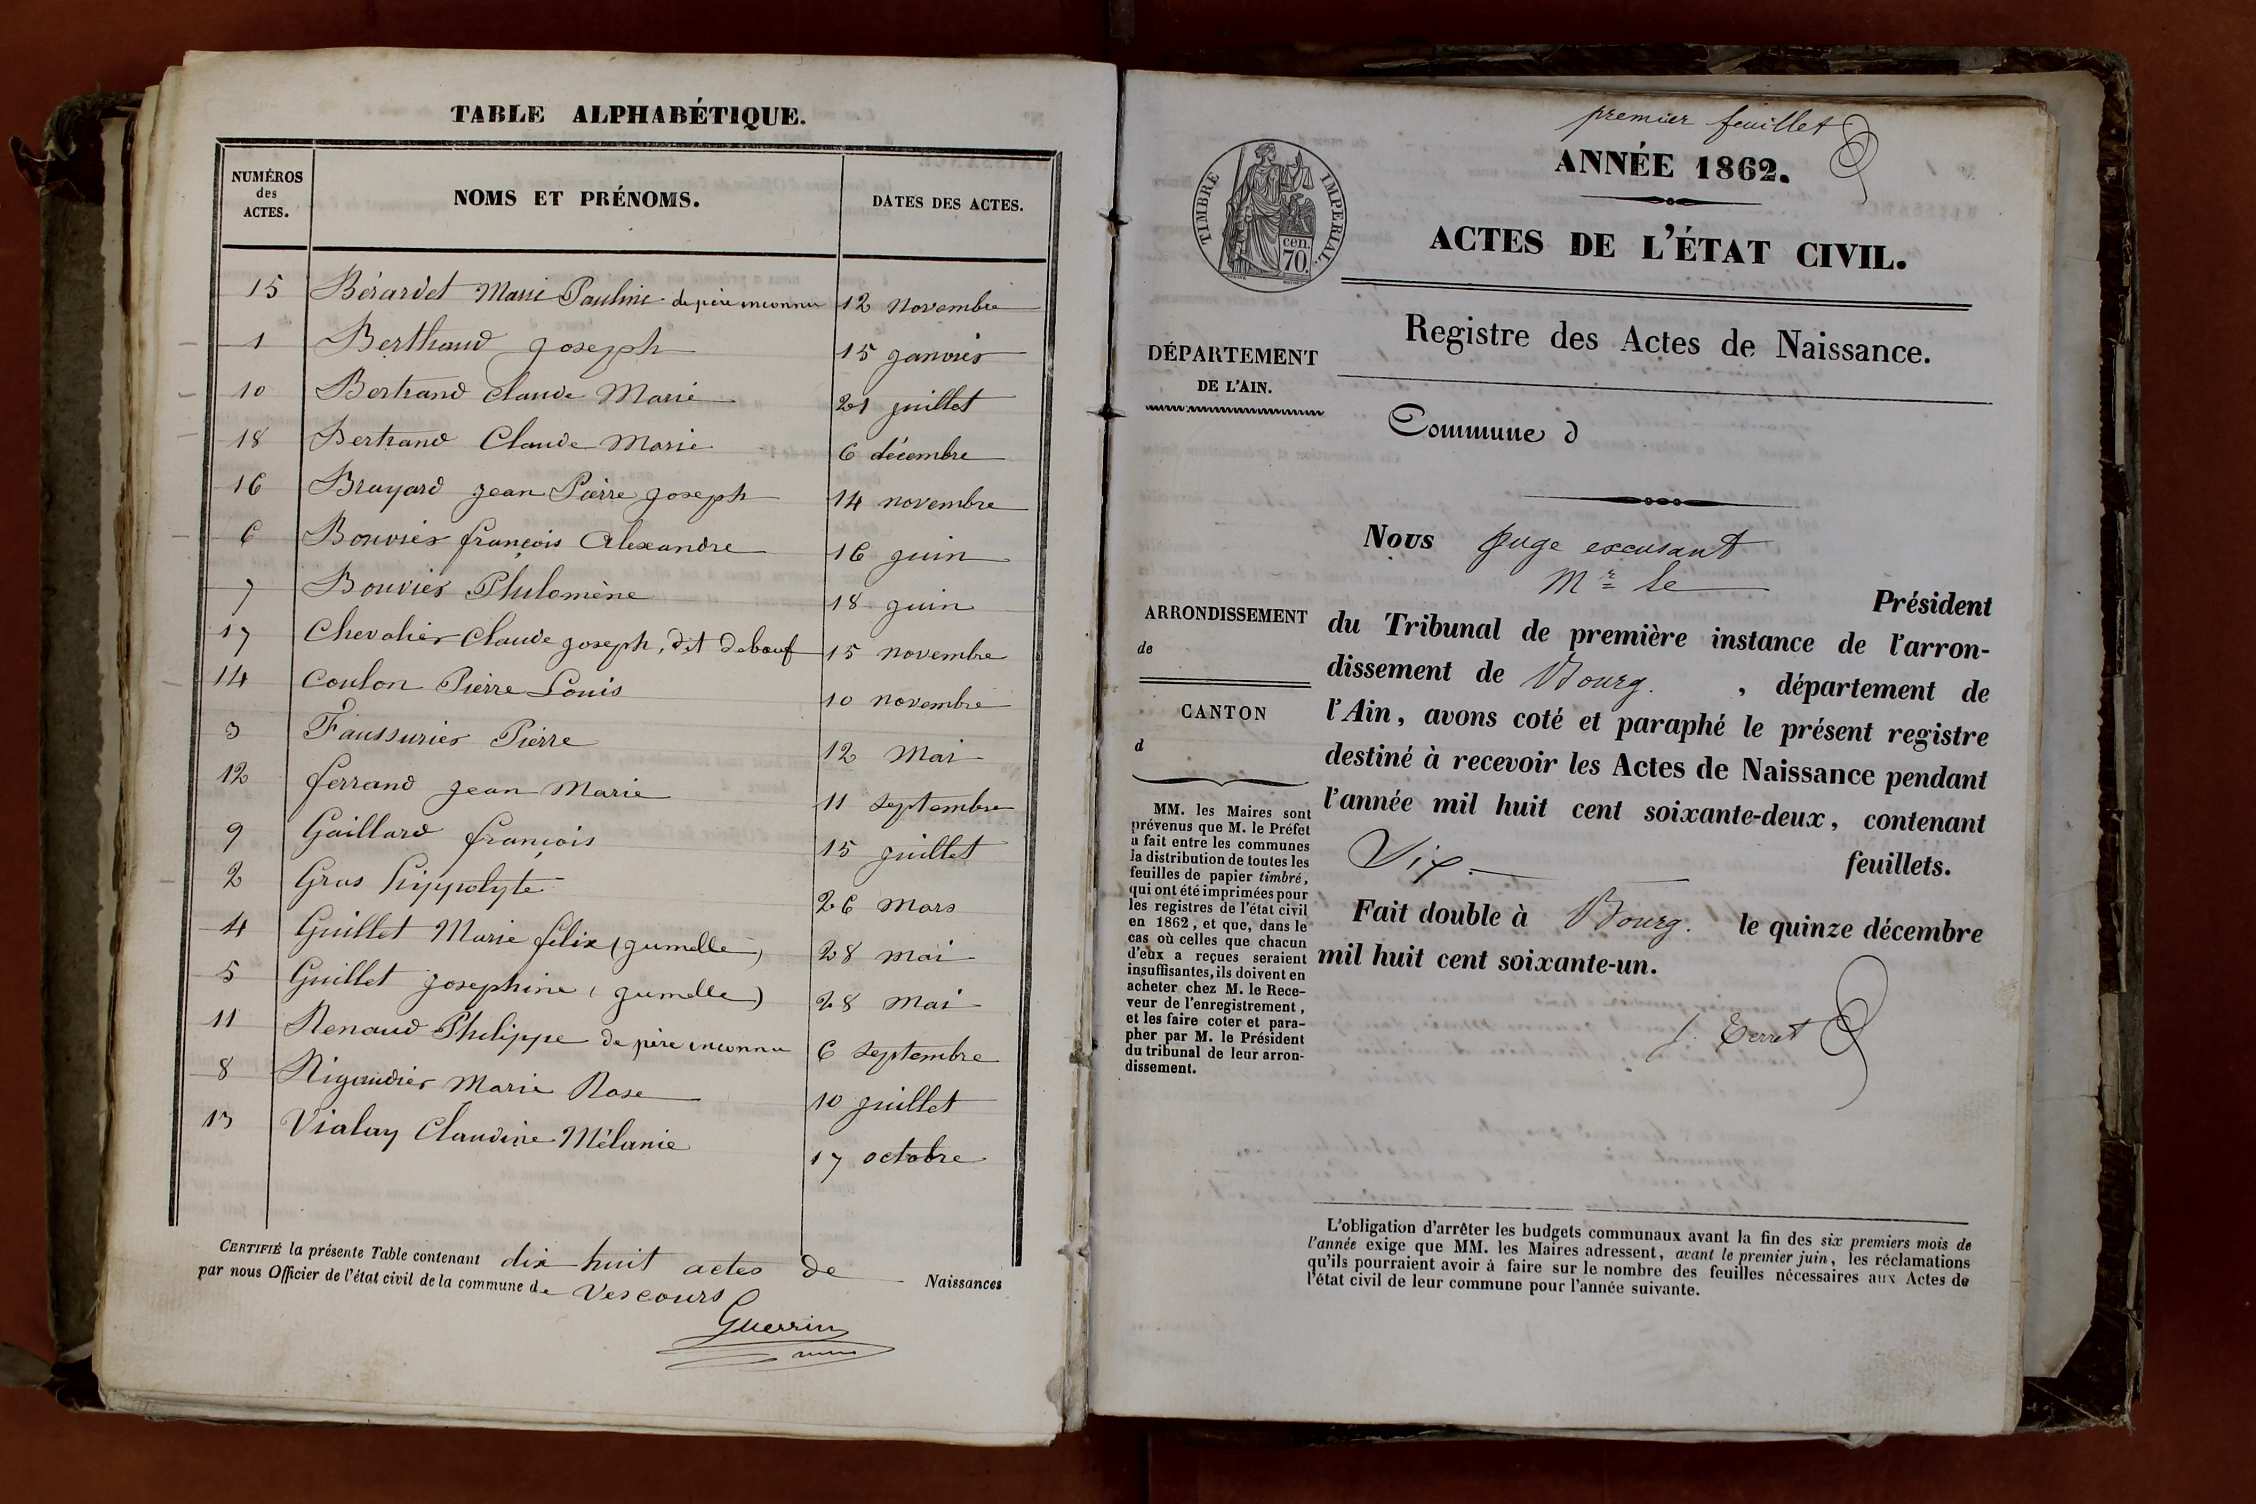 TABLE ALPHABÉTIQUE.
NUMÉROS des ACTES.
NOMS ET PRÉNOMS.
DATES DES ACTES.
15 Bérardet Marie Pauline de père inconnu 12 novembre
1 Berthaud Joseph 15 janvier
10 Bertrand Claude Marie 21 juillet
18 Bertrand Claude Marie 6 décembre
16 Brayard Jean Pierre Joseph 14 novembre
6 Bouvier françois Alexandre 16 juin
7 Bouvier Philomène 18 juin
17 Chevalier Claude Joseph, dit debœuf 15 novembre
14 Coulon Pierre Louis 10 novembre
3 Faussurier Pierre 12 Mai
12 ferrand Jean Marie 11 septembre
9 Gaillard françois 15 juillet
2 Gras hippolyte 26 mars
4 Guillet Marie félix (jumelle) 28 mai
5 Guillet Josephine (jumelle) 28 mai
11 Renaud Philippe de père inconnu 6 septembre
8 Rigaudier Marie Rose 10 juillet
13 Vialay Claudine Mélanie 17 octobre
CERTIFIÉ la présente Table contenant dix huit actes de Naissances
par nous Officier de l'état civil de la commune de Vescours
Guerrin
premier feuillet
ANNÉE 1862.
TIMBRE IMPÉRIAL.
cen.
70.
ACTES DE L'ÉTAT CIVIL.
Registre des Actes de Naissance.
DÉPARTEMENT
DE L'AIN.
Commune d
ARRONDISSEMENT
de
CANTON
d
MM. les Maires sont
prévenus que M. le Préfet
a fait entre les communes
la distribution de toutes les
feuilles de papier timbré,
qui ont été imprimées pour
les registres de l'état civil
en 1862, et que, dans le
cas où celles que chacun
d'eux a reçues seraient
insuffisantes, ils doivent en
acheter chez M. le Rece-
veur de l'enregistrement,
et les faire coter et para-
pher par M. le Président
du tribunal de leur arron-
dissement.
Nous juge excusant
Mr le Président
du Tribunal de première instance de l'arron-
dissement de Bourg. , département de
l'Ain, avons coté et paraphé le présent registre
destiné à recevoir les Actes de Naissance pendant
l'année mil huit cent soixante-deux, contenant
Six. feuillets.
Fait double à Bourg. le quinze décembre
mil huit cent soixante-un.
L'obligation d'arrêter les budgets communaux avant la fin des six premiers mois de
l'année exige que MM. les Maires adressent, avant le premier juin, les réclamations
qu'ils pourraient avoir à faire sur le nombre des feuilles nécessaires aux Actes de
l'état civil de leur commune pour l'année suivante.